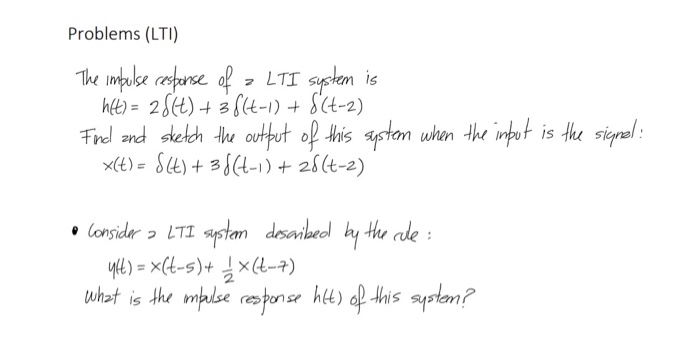 Problems (LTI)
The impulse response of a LTI system is
h(t) = 2δ(t) + 3δ(t-1) + δ(t-2)
Find and sketch the output of this system when the input is the signal:
x(t) = δ(t) + 3δ(t-1) + 2δ(t-2)
• Consider a LTI system described by the rule :
y(t) = x(t-5) + 1/2 x(t-7)
What is the impulse response h(t) of this system?